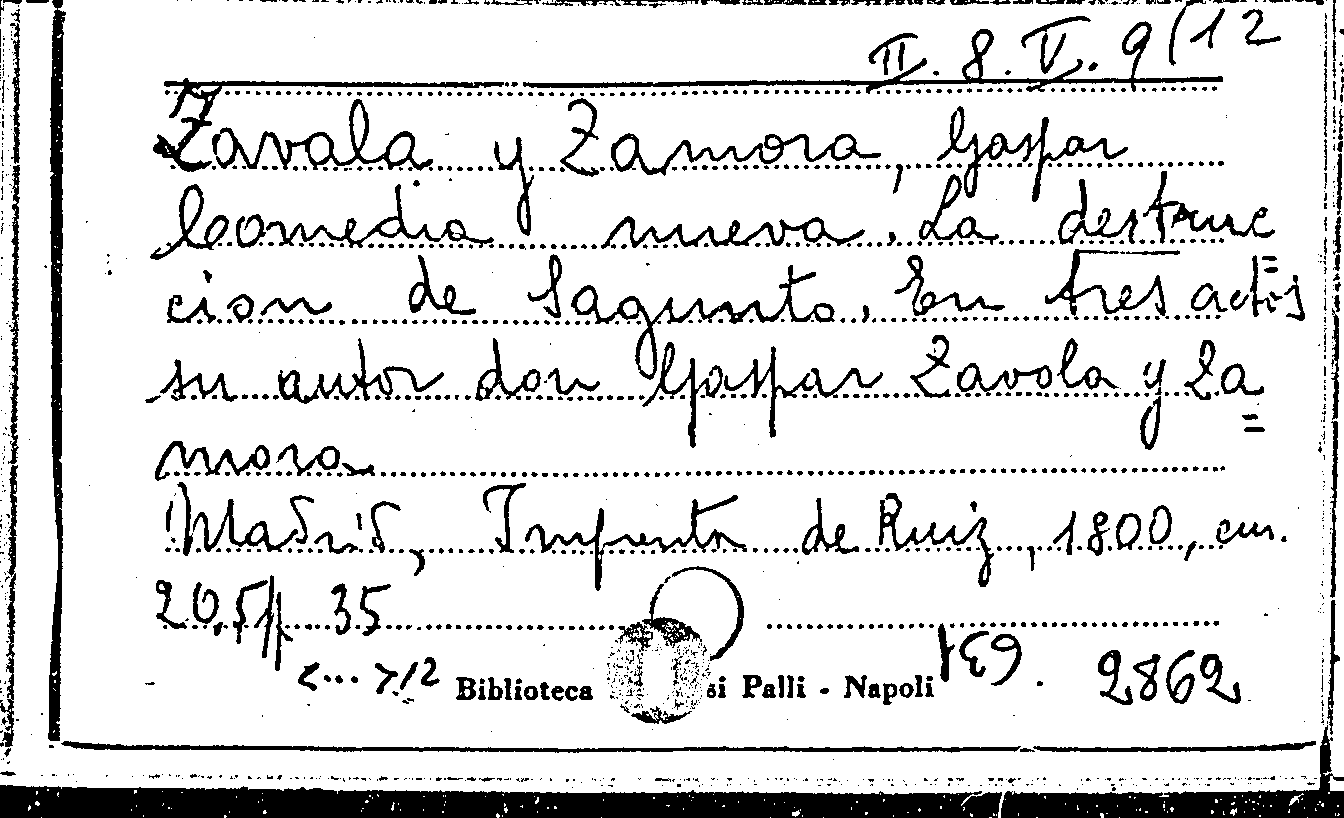 II. 8. V. 9(12
Zavala y Zamora, Gaspar
Comedia nueva. La destruc=
cion de Sagunto. En tres actos
su autor don Gaspar Zavala y Za=
mora
Madrid, Imprenta de Ruiz, 1800, cm.
20,5 p 35
<...>12
Biblioteca si Palli - Napoli
2862